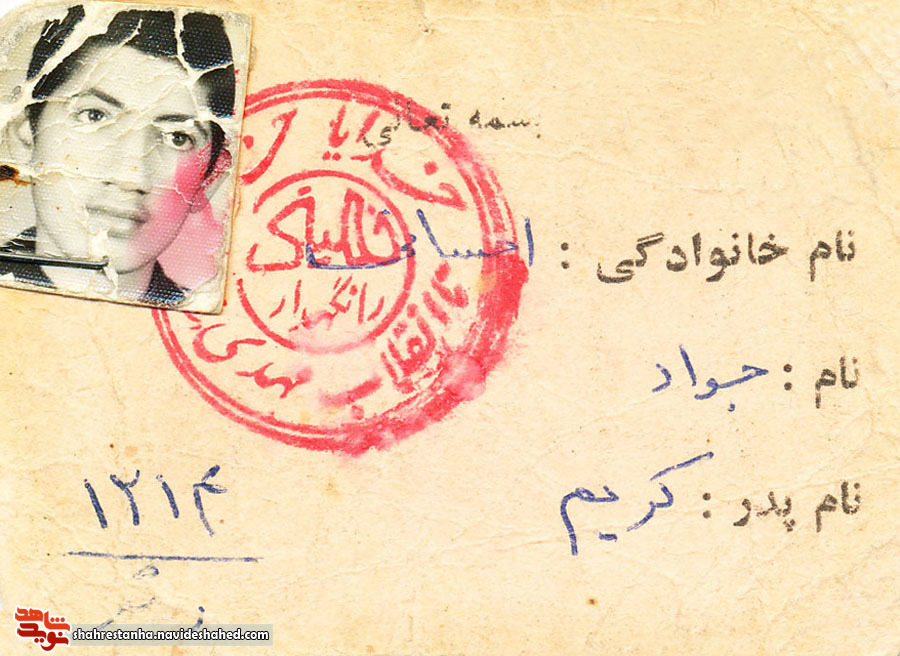 بسمه تعالی
نام خانوادگی : احسانی
نام : جواد
نام پدر : کریم
۱۳۱۴
خدایا خدایا تا انقلاب مهدی
خمینی
را نگهدار
نوید شاهد
shahrestanha.navideshahed.com